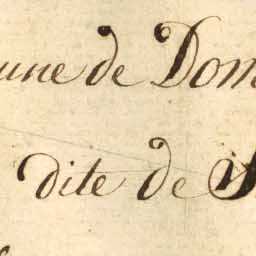 une de Dom
dite de